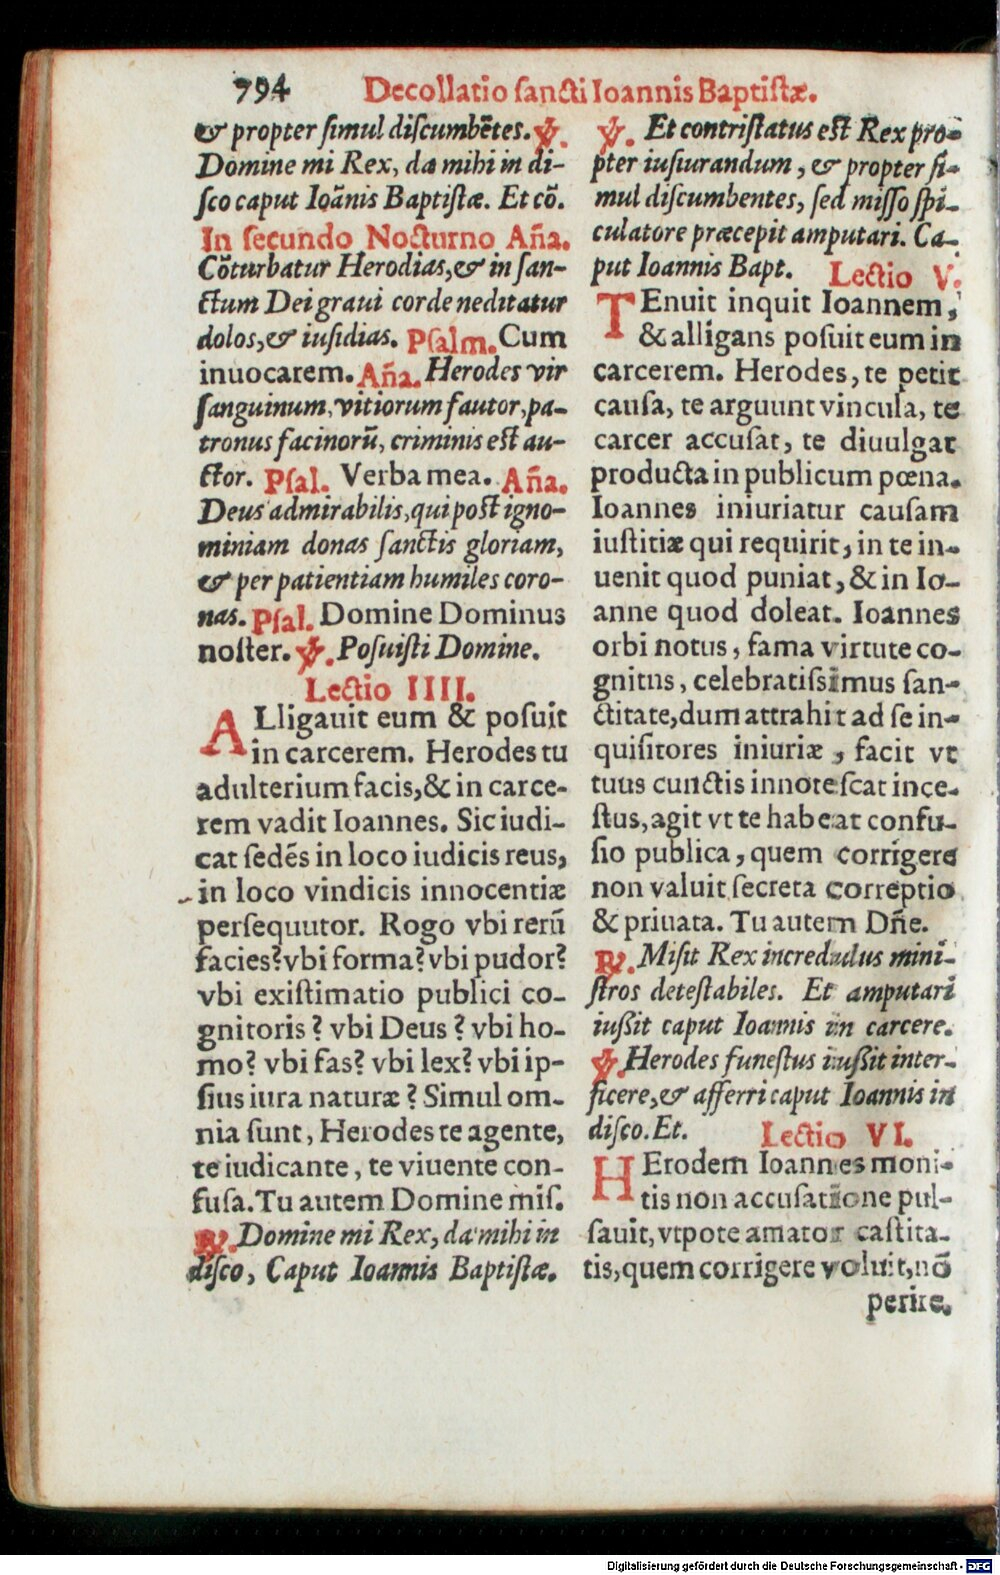 794 Decollatio sancti Ioannis Baptistæ.
& propter ſimul diſcumbētes. ℣.
Domine mi Rex, da mihi in di-
ſco caput Ioānis Baptiſtæ. Et cō.
In ſecundo Nocturno Aña.
Cōturbatur Herodias, & in ſan-
ctum Dei graui corde neditatur
dolos, & iuſidias. Pſalm. Cum
inuocarem. Aña. Herodes vir
ſanguinum, vitiorum fautor, pa-
tronus facinorū, criminis eſt au-
ctor. Pſal. Verba mea. Aña.
Deus admirabilis, qui poſt igno-
miniam donas ſanctis gloriam,
& per patientiam humiles coro-
nas. Pſal. Domine Dominus
noſter. ℣. Poſuiſti Domine.
Lectio IIII.
ALligauit eum & poſuit
in carcerem. Herodes tu
adulterium facis, & in carce-
rem vadit Ioannes. Sic iudi-
cat ſedēs in loco iudicis reus,
in loco vindicis innocentiæ
perſequutor. Rogo vbi rerū
facies? vbi forma? vbi pudor?
vbi exiſtimatio publici co-
gnitoris? vbi Deus? vbi ho-
mo? vbi fas? vbi lex? vbi ip-
ſius iura naturæ? Simul om-
nia ſunt, Herodes te agente,
te iudicante, te viuente con-
fuſa. Tu autem Domine miſ.
℟. Domine mi Rex, da mihi in
diſco, Caput Ioannis Baptiſtæ.
℣. Et contriſtatus eſt Rex pro-
pter iuſiurandum, & propter ſi-
mul diſcumbentes, ſed miſſo ſpi-
culatore præcepit amputari. Ca-
put Ioannis Bapt. Lectio V.
TEnuit inquit Ioannem,
& alligans poſuit eum in
carcerem. Herodes, te petit
cauſa, te arguunt vincula, te
carcer accuſat, te diuulgat
producta in publicum pœna.
Ioannes iniuriatur cauſam
iuſtitiæ qui requirit, in te in-
uenit quod puniat, & in Io-
anne quod doleat. Ioannes
orbi notus, fama virtute co-
gnitus, celebratiſsimus ſan-
ctitate, dum attrahit ad ſe in-
quiſitores iniuriæ, facit vt
tuus cunctis innoteſcat ince-
ſtus, agit vt te habeat confu-
ſio publica, quem corrigere
non valuit ſecreta correptio
& priuata. Tu autem Dñe.
℟. Miſit Rex incredulus mini-
ſtros deteſtabiles. Et amputari
iuſsit caput Ioannis in carcere.
℣. Herodes funeſtus iuſsit inter-
ficere, & afferri caput Ioannis in
diſco. Et. Lectio VI.
HErodem Ioannes moni-
tis non accuſatione pul-
ſauit, vtpote amator caſtita-
tis, quem corrigere voluit, nō
perire.
Digitalisierung gefördert durch die Deutsche Forschungsgemeinschaft - DFG